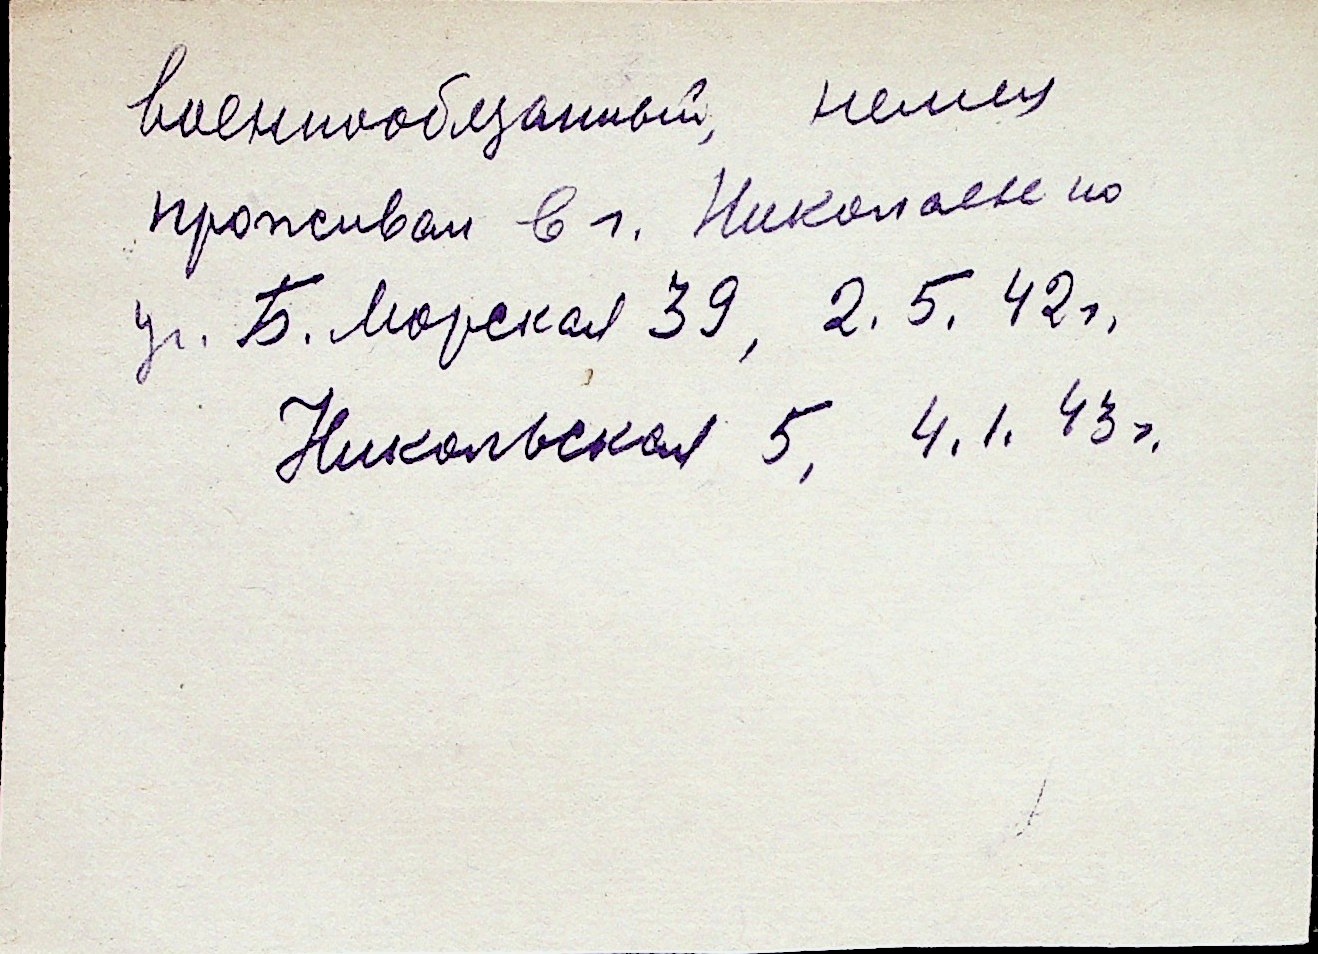 военнообязанный, немец
проживал в г. Николаеве по
ул. Б. Морская 39, 2.5.42г.
Никольская 5, 4.1.43г.